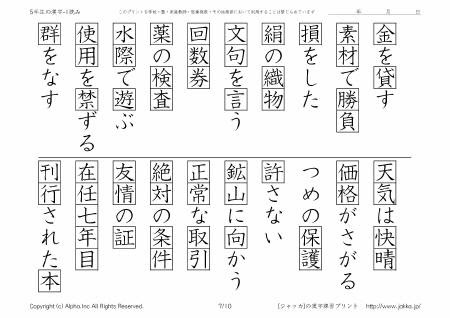 5年生の漢字-1読み
このプリントを学校・塾・家庭教師・医療施設・その他施設において利用することは禁じられています
年 月 日
金を貸す
素材で勝負
損をした
絹の織物
文句を言う
回数券
薬の検査
水際で遊ぶ
使用を禁ずる
群をなす
天気は快晴
価格がさがる
つめの保護
許さない
鉱山に向かう
正常な取引
絶対の条件
友情の証
在任七年目
刊行された本
Copyright (c) Alpha.Inc All Rights Reserved.
7/10
[ジャッカ]の漢字練習プリント http://www.jakka.jp/